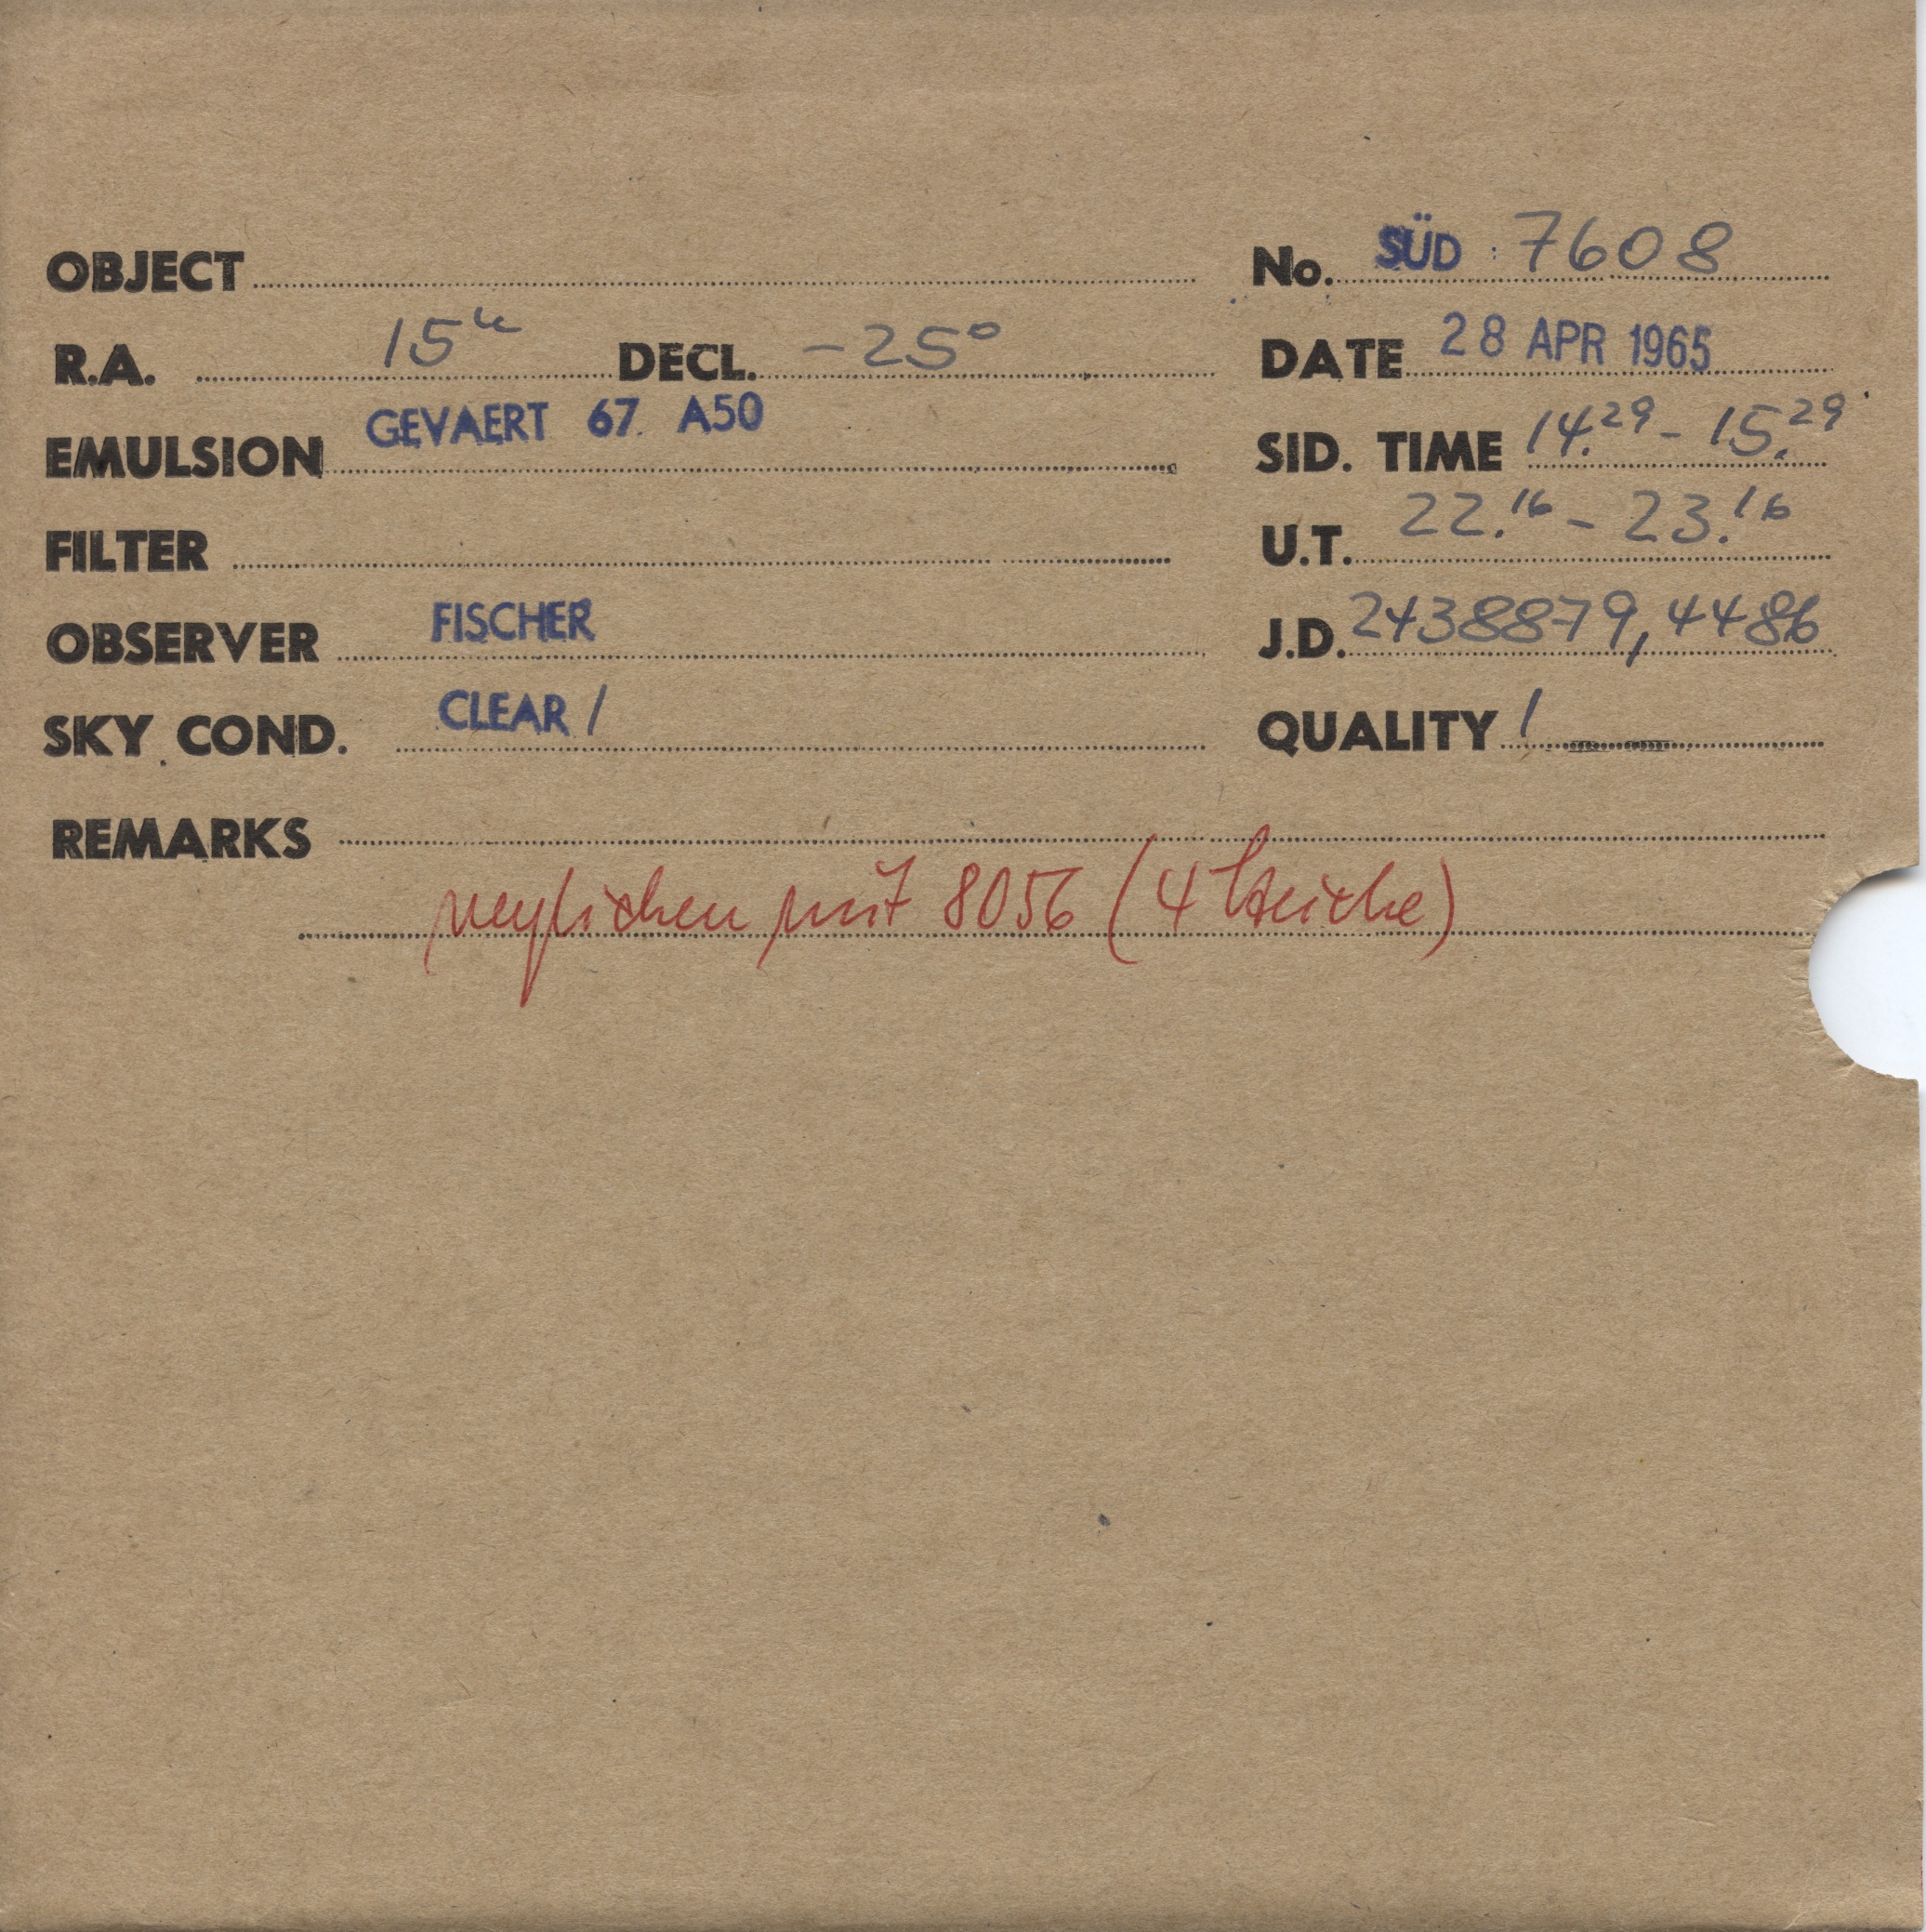 OBJECT No. SÜD : 7608
R.A. 15h DECL. -25°
DATE 28 APR 1965
EMULSION GEVAERT 67. A50
SID. TIME 14.29 - 15.29
FILTER
U.T. 22.16 - 23.16
OBSERVER FISCHER
J.D. 2438879,4486
SKY COND. CLEAR /
QUALITY 1
REMARKS
verglichen mit 8056 (4 Striche)